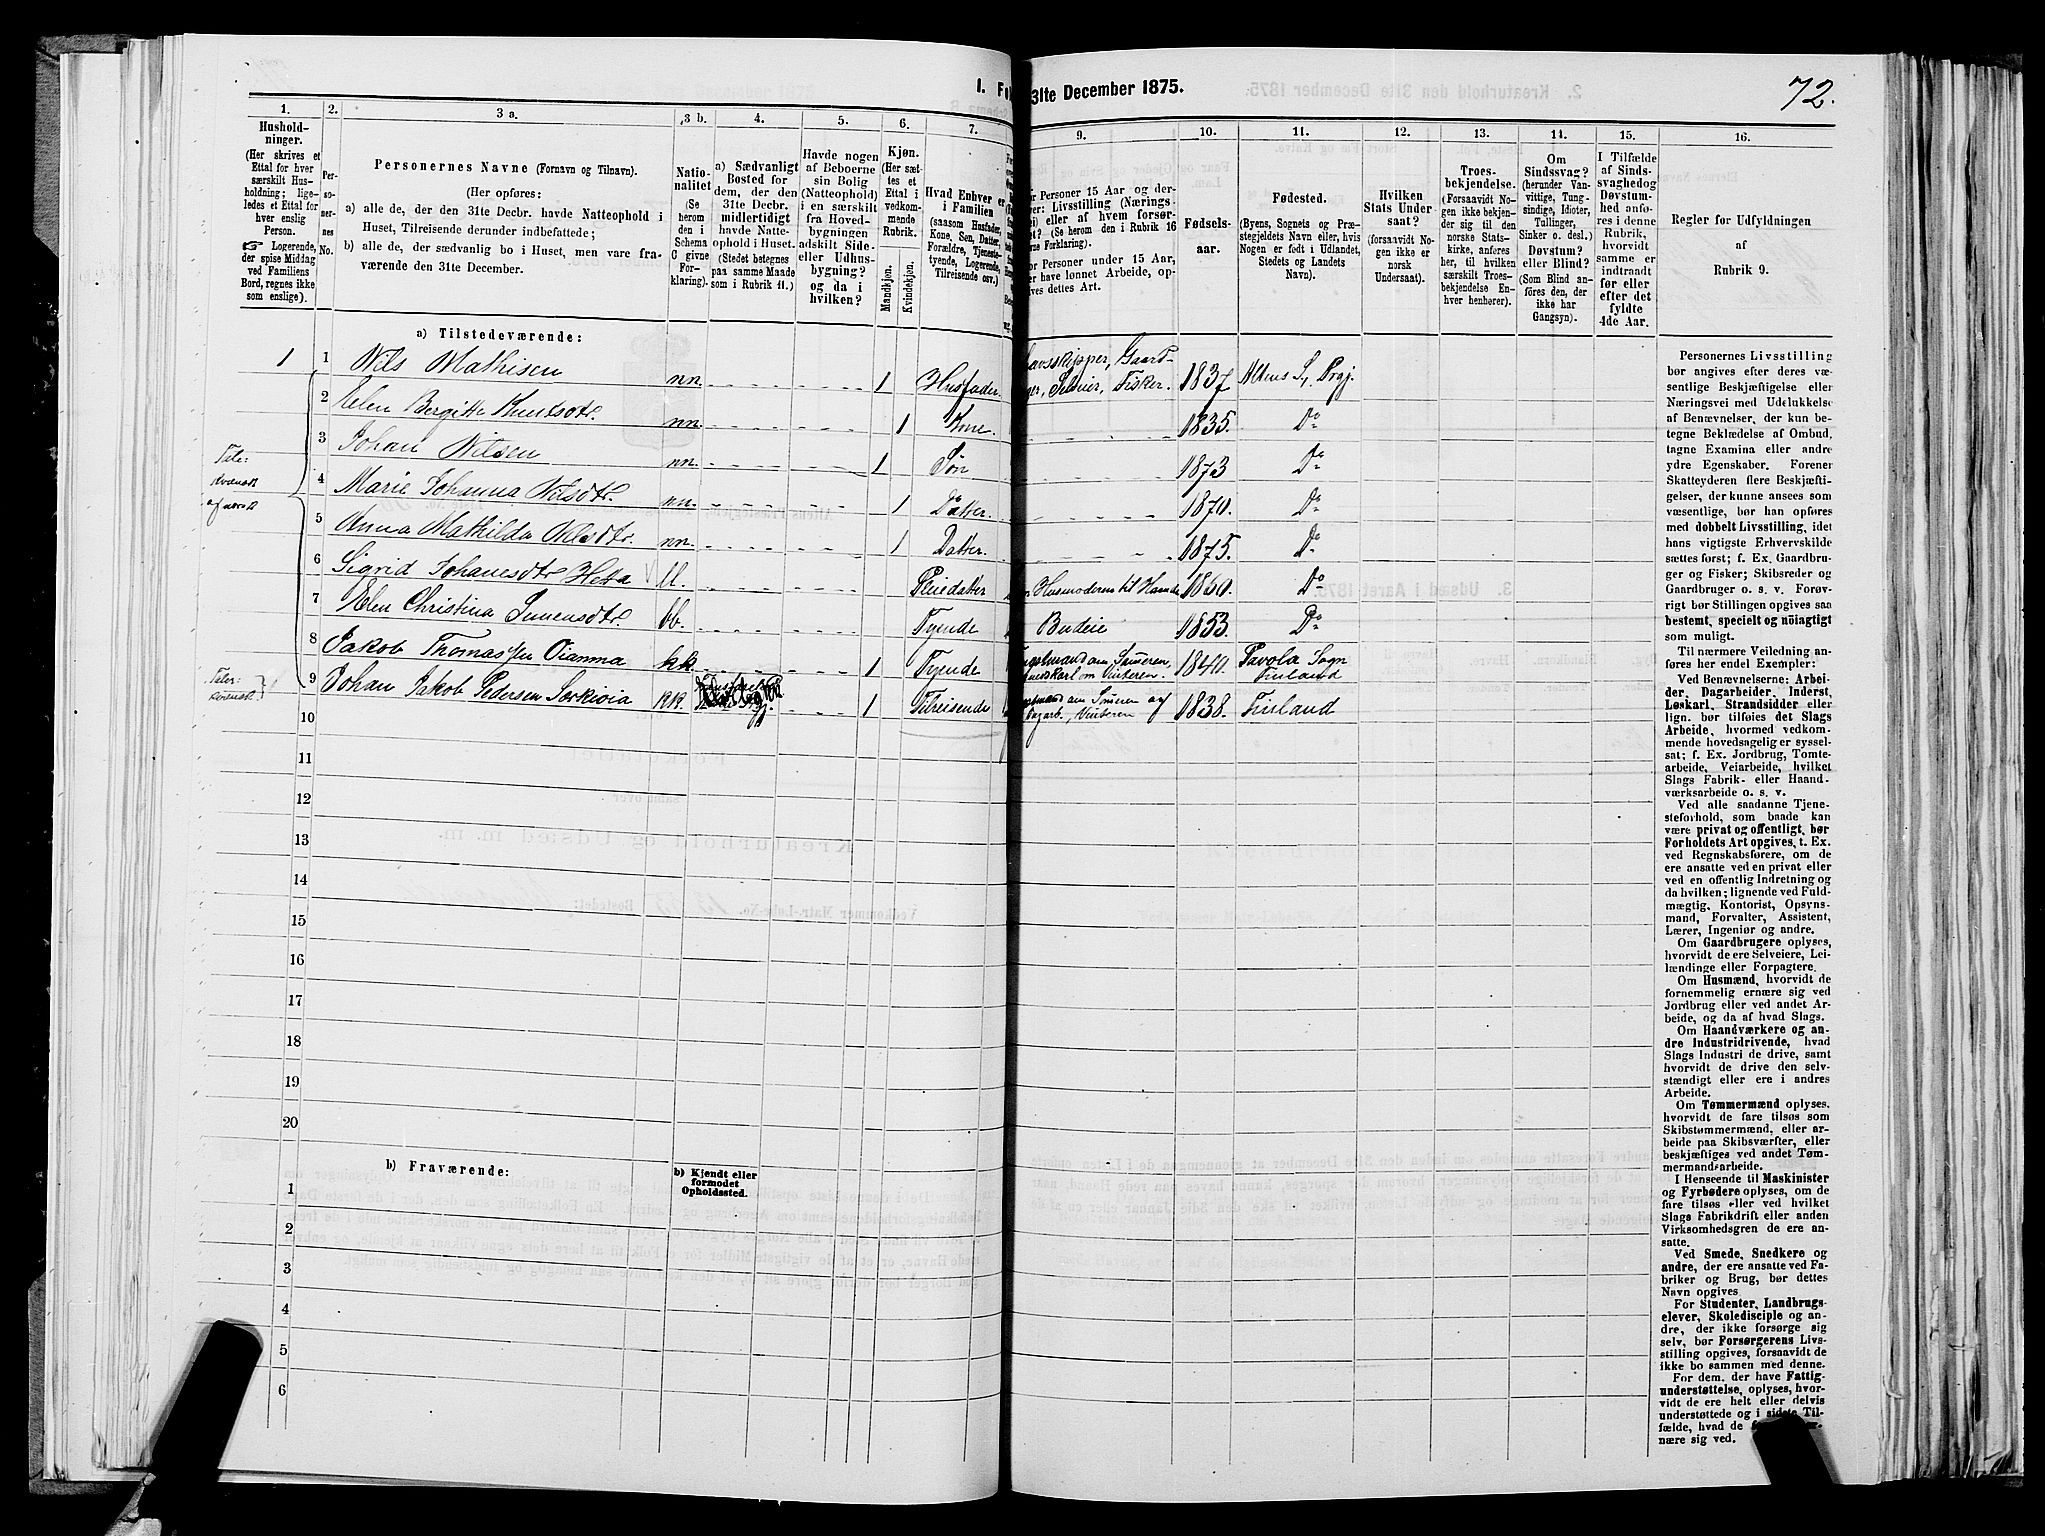 1. Fo
31te December 1875.
72.
1.
Hushold-
ninger.
(Her skrives et
Ettal for hver
særskilt Hus-
holdning; lige-
ledes et Ettal for
hver enslig
Person.
Logerende,
der spise Middag
ved Familiens
Bord, regnes ikke
som enslige).
2.
Per-
so-
ner-
nes
No.
3 a.
Personernes Navne (Fornavn og Tilnavn).
(Her opføres:
a) alle de, der den 31te Decbr. havde Natteophold i
Huset, Tilreisende derunder indbefattede;
b) alle de, der sædvanlig bo i Huset, men vare fra-
værende den 31te December.
3 b.
Natio-
nalitet
(Se
herom
den i
Schema
C givne
For-
klaring).
4.
a) Sædvanligt
Bosted for
dem, der den
31te Decbr.
midlertidigt
havde Natte-
ophold i Huset.
(Stedet betegnes
paa samme Maade
som i Rubrik 11.)
5.
Havde nogen
af Beboerne
sin Bolig
(Natteophold)
i en særskilt
fra Hoved-
bygningen
adskilt Side-
eller Udhus-
bygning?
og da i
hvilken?
6.
Kjøn.
(Her sæt-
tes et
Ettal i
vedkom-
mende
Rubrik.
Mandkjøn.
Kvindekjøn.
7.
Hvad Enhver er
i Familien
(saasom Husfader,
Kone, Søn, Datter,
Forældre, Tjeneste-
tyende, Logerende,
Tilreisende osv.)
9.
or Personer 15 Aar og der-
ver: Livsstilling (Nærings-
i) eller af hvem forsør-
t? (Se herom den i Rubrik 16
ne Forklaring).
or Personer under 15 Aar,
r have lønnet Arbeide, op-
ves dettes Art.
10.
Fødsels-
aar.
11.
Fødested.
(Byens, Sognets og Præ-
stegjeldets Navn eller, hvis
Nogen er født i Udlandet,
Stedets og Landets
Navn).
12.
Hvilken
Stats Under
saat?
(forsaavidt No-
gen ikke er
norsk
Undersaat).
13.
Troes-
bekjendelse.
(Forsaavidt No-
gen ikke bekjen-
der sig til den
norske Stats-
kirke, anføres
her, til hvilken
særskilt Troes-
bekjendelse En-
hver henhører).
14.
Om
Sindssvag?
(herunder Van-
vittige, Tung-
sindige, Idioter,
Tullinger,
Sinker o. desl.)
Døvstum?
eller Blind?
(Som Blind an-
føres den, der
ikke har
Gangsyn).
15.
I Tilfælde
af Sinds-
svaghed og
Døvstum-
hed anfø-
res i denne
Rubrik,
hvorvidt
samme er
indtraadt
før eller
efter det
fyldte
4de Aar.
16.
Regler for Udfyldningen
af
Rubrik 9.
a) Tilstedeværende:
1 1 Nils Mathisen nn. 1 Husfader. avsskipper, Gaard- ger, Seleier, Fisker. 1837 Altens S, Prgj.
2 Elen Bergitte Knutsdtr. nn. 1 Kone. 1835. Do
3 Johan Nilsen nn. 1 Søn 1873 Do
4 Marie Johanna Nilsdtr. nn. 1 Datter. 1870. Do
5 Anna Mathilda Nilsdtr. nn. 1 Datter. 1875. Do
6 Sigrid Johanesdtr Hetta ll. Pleiedatter Husmoderen til Haande 1860. Do
7 Elen Christina Simensdtr. bb. Tyende Budeie 1853. Do
8 Jakob Thomassen Oianma kk. 1 Tyende ngstmand om Sommeren, karl om Vinteren. 1840. Pavola Sogn Finland
9 Johan Jakob Pedersen Sarkivia kk. 1 Tilreisende mand om Sommeren og Dagarb., Vinteren 1838. Finland
Taler
kvensk
og norsk
Taler
kvensk
10
11
12
13
14
15
16
17
18
19
20
b) Fraværende:
b) Kjendt eller
formodet
Opholdssted.
1
2
3
4
5
6
Personernes Livsstilling
bør angives efter deres væ-
sentlige Beskjæftigelse eller
Næringsvei med Udelukkelse
af Benævnelser, der kun be-
tegne Beklædelse af Ombud,
tagne Examina eller andre
ydre Egenskaber. Forener
Skatteyderen flere Beskjæfti-
gelser, der kunne ansees som
væsentlige, bør han opføres
med dobbelt Livsstilling, idet
hans vigtigste Erhvervskilde
sættes først; f. Ex. Gaardbru-
ger og Fisker; Skibsreder og
Gaardbruger o. s. v. Forøv-
rigt bør Stillingen opgives saa
bestemt, specielt og nöiagtigt
som muligt.
Til nærmere Veiledning an-
føres her endel Exempler:
Ved Benævnelserne: Arbei-
der, Dagarbeider, Inderst,
Løskarl, Strandsidder eller
lign. bør tilføies det Slags
Arbeide, hvormed vedkom-
mende hovedsagelig er syssel-
sat; f. Ex. Jordbrug, Tomte-
arbeide, Veiarbeide, hvilket
Slags Fabrik- eller Haand-
værksarbeide o. s. v.
Ved alle saadanne Tjene-
steforhold, som baade kan
være privat og offentligt, bør
Forholdets Art opgives, t. Ex.
ved Regnskabsførere, om de
ere ansatte ved en privat eller
ved en offentlig Indretning og
da hvilken; lignende ved Fuld-
mægtig, Kontorist, Opsyns-
mand, Forvalter, Assistent,
Lærer, Ingeniør og andre.
Om Gaardbrugere oplyses,
hvorvidt de ere Selveiere, Lei-
lændinge eller Forpagtere.
Om Husmænd, hvorvidt de
fornemmelig ernære sig ved
Jordbrug eller ved andet Ar-
beide, og da af hvad Slags.
Om Haandværkere og an-
dre Industridrivende, hvad
Slags Industri de drive, samt
hvorvidt de drive den selv-
stændigt eller ere i andres
Arbeide.
Om Tømmermænd oplyses,
hvorvidt de fare tilsøs som
Skibstømmermænd, eller ar-
beide paa Skibsværfter, eller
beskjæftiges ved andet Tøm-
mermandsarbeide.
I Henseende til Maskinister
og Fyrbødere oplyses, om de
fare tilsøs eller ved hvilket
Slags Fabrikdrift eller anden
Virksomhedsgren de ere an-
satte.
Ved Smede, Snedkere og
andre, der ere ansatte ved Fa-
briker og Brug, bør dettes
Navn opgives
For Studenter, Landbrugs-
elever, Skoledisciple og an-
dre, der ikke forsørge sig
selv, bør Forsørgerens Livs-
stilling opgives, forsaavidt de
ikke bo sammen med denne.
For dem, der have Fattig-
understøttelse, oplyses, hvor-
vidt de ere helt eller delvis
understøttede og i sidste Til-
fælde, hvad de
nære sig ved.